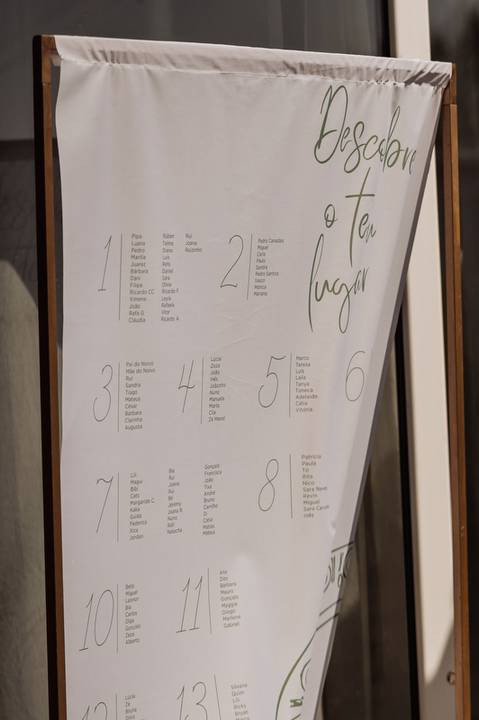 Descobre
o teu
lugar
1
Pipa
Luana
Pedro
Marília
Juanez
Bárbara
Dani
Filipa
Ricardo CC
Ximena
João
Rafa G
Cláudia
Rúben
Telma
Diana
Luis
Rafa
Daniel
Sara
Olívia
Ricardo F
Leyla
Rafaela
Vítor
Ricardo A
Rui
Joana
2
Pedro Canadas
Miguel
Carla
Paulo
Sandra
Pedro Santos
Vasco
Mónica
Mariana
3
Pai do Noivo
Mãe do Noivo
Rui
Sandra
Tiago
Mateus
César
Bárbara
Clarinha
Augusta
4
Lúcia
Zeza
João
Inês
Nuno
Manuela
Marta
Cila
Zé Manel
5
Marco
Teresa
Luís
Laila
Tanya
Adelaide
Cátia
Vitória
6
7
Lili
Magui
Bibi
Cató
Margarida C
Kaka
Guida
Federica
Xica
Jordan
Bia
Rui
Joana
Rui
Bé
Jérémy
Joana R
Nuno
Natacha
Gonçalo
Francisca
João
Tixa
André
Bruno
Camilha
Di
Cátia
Matias
Mateus
8
Patrícia
Paula
Tó
Rita
Nico
Sara Neves
Kevin
Miguel
Inês
10
Bela
Miguel
Leonor
Bia
Carlos
Olga
Gonçalo
Zeza
Alberto
11
Ana
Dias
Bárbara
Mauro
Gonçalo
Maggie
Diogo
Marlene
Gabriel
12
Lúcia
Zé
Bruna
13
Silvana
Quim
Lili
Ricky
Bryan